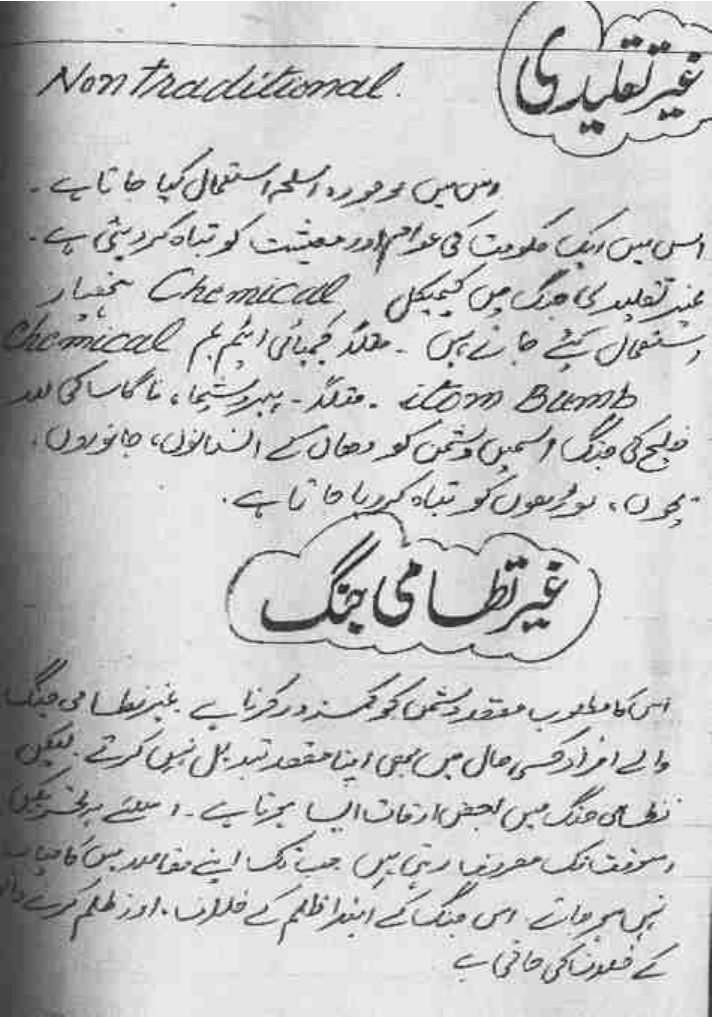 غیر تقلیدی
Non traditional.
اس میں موجودہ اسلحہ استعمال کیا جاتا ہے۔
اس میں ایک حکومت کی عوام اور معیشت کو تباہ کردیتی ہے۔
غیر تقلیدی جنگ میں کیمیکل Chemical ہتھیار
استعمال کیئے جاتے ہیں ۔ مثلاً کیمیائی ایٹم بم Chemical
itom Bumb ۔ مثلاً ۔ ہیروشیما، ناگاساکی اور
خلیج کی جنگ اسمیں دشمن کو وھاں کے انسانوں، جانوروں،
بچوں، بوڑھوں کو تباہ کردیا جاتا ہے۔
غیر نظامی جنگ
اس کا مطلوب مقصد دشمن کو کمزور کرنا ہے ۔ غیر نظامی جنگ
والے افراد کسی حال میں بھی اپنا مقصد تبدیل نہیں کرتے ۔ لیکن
نظامی جنگ میں بعض اوقات ایسا ہوتا ہے ۔ اسلئے یہ تحریکیں
اسوقت تک مصروف رہتی ہیں جب تک اپنے مقاصد میں کامیاب
نہیں ہو جاتے اس جنگ کے ابتدا ظلم کے خلاف، اور ظلم کرنے والوں
کے خلاف کی جاتی ہے